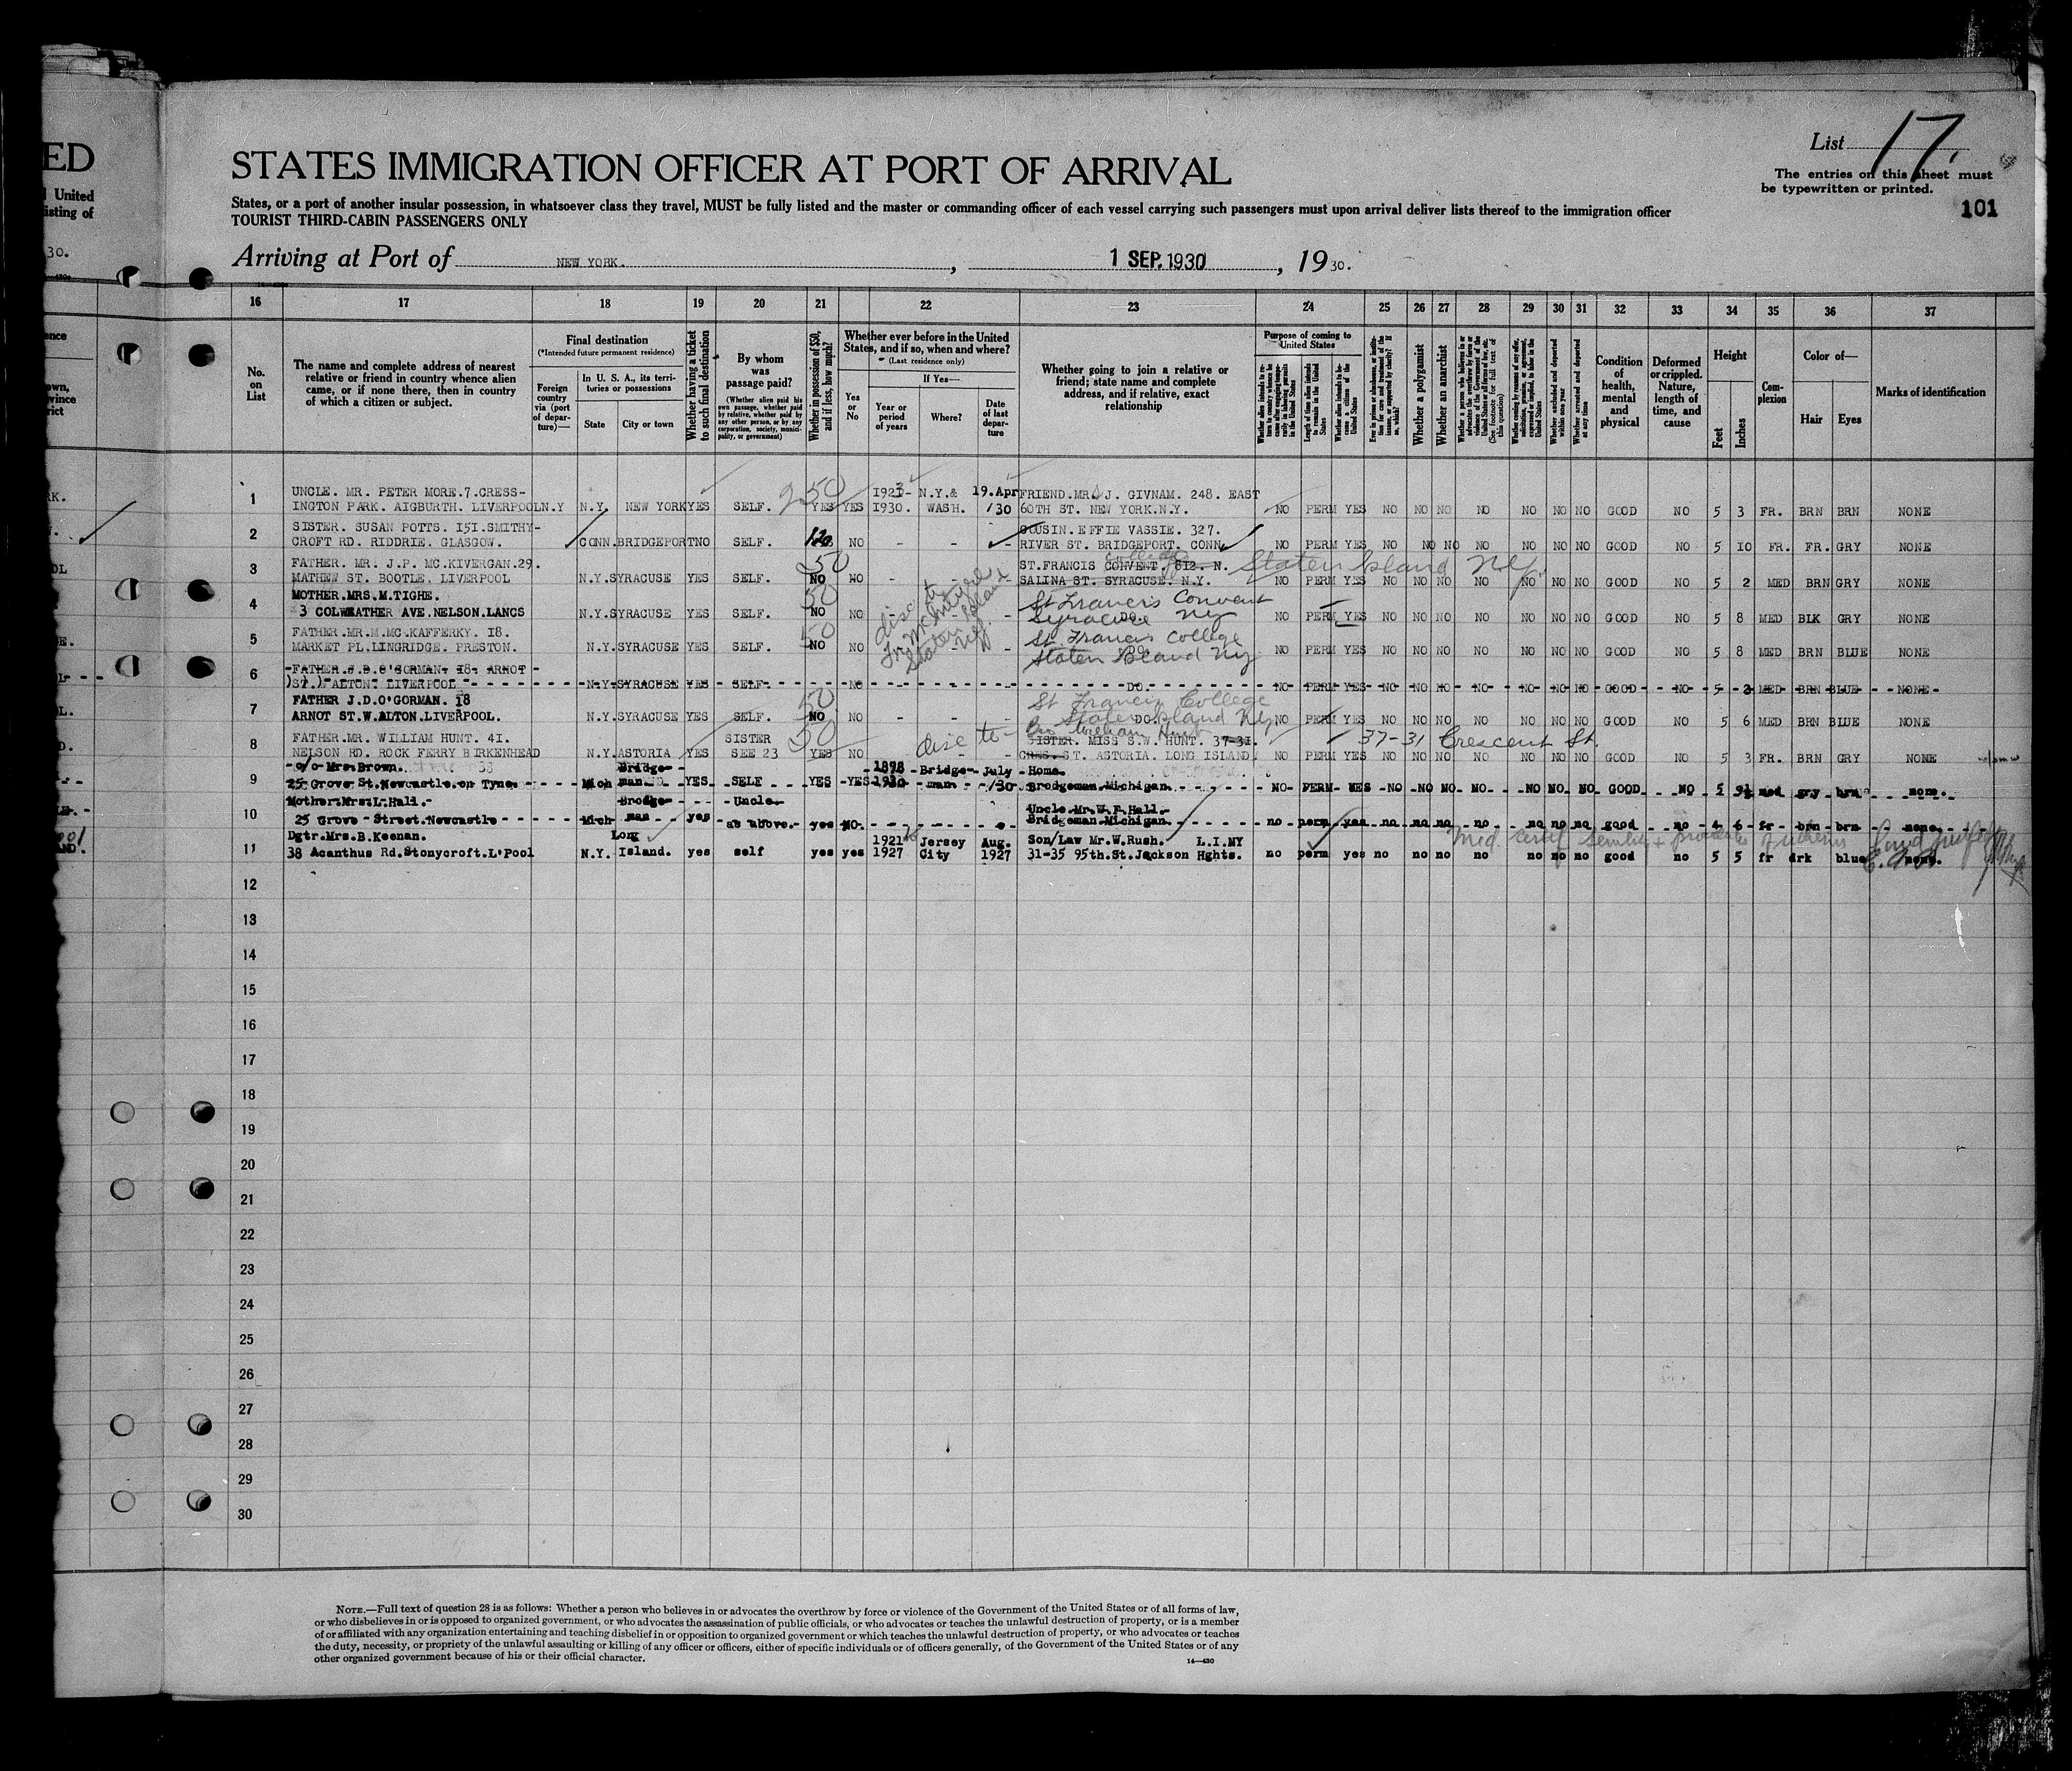 ED
United
isting of
30.
List 17.
The entries on this sheet must
be typewritten or printed.
101
STATES IMMIGRATION OFFICER AT PORT OF ARRIVAL
States, or a port of another insular possession, in whatsoever class they travel, MUST be fully listed and the master or commanding officer of each vessel carrying such passengers must upon arrival deliver lists thereof to the immigration officer
TOURIST THIRD-CABIN PASSENGERS ONLY
Arriving at Port of NEW YORK. , 1 SEP. 1930 , 19 30.
16 17 18 19 20 21 22 23 24 25 26 27 28 29 30 31 32 33 34 35 36 37
No. on List
The name and complete address of nearest relative or friend in country whence alien came, or if none there, then in country of which a citizen or subject.
Final destination
(*Intended future permanent residence)
Foreign country via (port of departure)—
In U. S. A., its territories or possessions
State
City or town
Whether having a ticket to such final destination
By whom was passage paid?
(Whether alien paid his own passage, whether paid by relative, whether paid by any other person, or by any corporation, society, municipality, or government)
Whether in possession of $50, and if less, how much?
Whether ever before in the United States, and if so, when and where?
(Last residence only)
Yes or No
If Yes—
Year or period of years
Where?
Date of last departure
Whether going to join a relative or friend; state name and complete address, and if relative, exact relationship
Purpose of coming to United States
Length of time alien intends to remain in the United States
Whether alien intends to become a citizen of the United States
Whether a polygamist
Whether an anarchist
Whether excluded and deported within one year
Whether arrested and deported at any time
Condition of health, mental and physical
Deformed or crippled. Nature, length of time, and cause
Height
Feet
Inches
Complexion
Color of—
Hair
Eyes
Marks of identification
1 UNCLE. MR. PETER MORE.7.CRESS-
INGTON PARK. AIGBURTH. LIVERPOOL N.Y N.Y. NEW YORK YES SELF. 250 YES YES 1923- 1930. N.Y.& WASH. 19.Apr /30 FRIEND.MR. J. GIVNAM. 248. EAST
60TH ST. NEW YORK.N.Y. NO PERM YES NO NO NO NO NO NO NO GOOD NO 5 3 FR. BRN BRN NONE
2 SISTER. SUSAN POTTS. 151.SMITHY-
CROFT RD. RIDDRIE. GLASGOW. CONN.BRIDGEPORT NO SELF. 120 NO - - - COUSIN. EFFIE VASSIE. 327.
RIVER ST. BRIDGEPORT. CONN. NO PERM YES NO NO NO NO NO NO NO GOOD NO 5 10 FR. FR. GRY NONE
3 FATHER. MR. J.P. MC.KIVERGAN.29.
MATHEW ST. BOOTLE. LIVERPOOL N.Y.SYRACUSE YES SELF. 50 NO NO - ST.FRANCIS CONVENT. 812. N. College Staten Island NY.
SALINA ST. SYRACUSE. N.Y. NO PERM YES NO NO NO NO NO NO NO GOOD NO 5 2 MED BRN GRY NONE
4 MOTHER.MRS.M.TIGHE.
3 COLWEATHER AVE.NELSON.LANCS N.Y.SYRACUSE YES SELF. 50 NO NO - St Francis Convent
DO. Syracuse NY NO PERM YES NO NO NO NO NO NO NO GOOD NO 5 8 MED BLK GRY NONE
5 FATHER.MR.M.MC.KAFFERKY. 18.
MARKET PL.LINGRIDGE. PRESTON. N.Y.SYRACUSE YES SELF. 50 NO NO - St. Francis College
DO. Staten Island NY NO PERM YES NO NO NO NO NO NO NO GOOD NO 5 8 MED BRN BLUE NONE
6 FATHER.J.D.O'GORMAN. 18- ARNOT
ST. ALTON. LIVERPOOL N.Y-SYRACUSE YES SELF. NO DO. NO PERM YES NO NO NO NO NO NO NO GOOD NO 5 2 MED BRN BLUE NONE
7 FATHER J.D.O'GORMAN. 18
ARNOT ST.W.ALTON.LIVERPOOL. N.Y.SYRACUSE YES SELF. 50 NO NO - - - St Francis College
DO. Staten Island NY NO PERM YES NO NO NO NO NO NO NO GOOD NO 5 6 MED BRN BLUE NONE
8 FATHER.MR. WILLIAM HUNT. 41.
NELSON RD. ROCK FERRY BIRKENHEAD N.Y.ASTORIA YES SISTER SEE 23 50 YES NO disc to Bro William Hunt
SISTER. MISS S.W. HUNT. 37-31. 37-31 Crescent St.
CRES. ST. ASTORIA. LONG ISLAND. NO PERM YES NO NO NO NO NO NO NO GOOD NO 5 3 FR. BRN GRY NONE
9 c/o Mrs.Brown.
25 Grove St.Newcastle.on Tyne. Mich Bridge-man YES SELF YES YES 1898 1930 Bridge-man July /30 Home.
Brodgeman.Michigan. NO PERM YES NO NO NO NO NO NO NO GOOD NO 5 9½ med gry brn none.
10 Mother:Mrs:L.Hall.
25 Grove Street.Newcastle Mich Brodge-man yes Uncle as above. yes NO. Uncle.Mr.W.F.Hall.
Bridgeman.Michigan. no perm yes no no no no no no no good no 4 6 fr brn brn none.
11 Dgtr.Mrs.B.Keenan.
38 Acanthus Rd.Stonycroft.L'Pool N.Y. Long Island. yes self yes yes 1921 1927 Jersey City Aug. 1927 Son/Law Mr.W.Rush. L.I.NY
31-35 95th.St.Jackson Hghts. no perm yes no no no no no no no good no 5 5 fr drk blue none.
12
13
14
15
16
17
18
19
20
21
22
23
24
25
26
27
28
29
30
NOTE.—Full text of question 28 is as follows: Whether a person who believes in or advocates the overthrow by force or violence of the Government of the United States or of all forms of law,
or who disbelieves in or is opposed to organized government, or who advocates the assassination of public officials, or who advocates or teaches the unlawful destruction of property, or is a member
of or affiliated with any organization entertaining and teaching disbelief in or opposition to organized government or which teaches the unlawful destruction of property, or who advocates or teaches
the duty, necessity, or propriety of the unlawful assaulting or killing of any officer or officers, either of specific individuals or of officers generally, of the Government of the United States or of any
other organized government because of his or their official character.
14—430